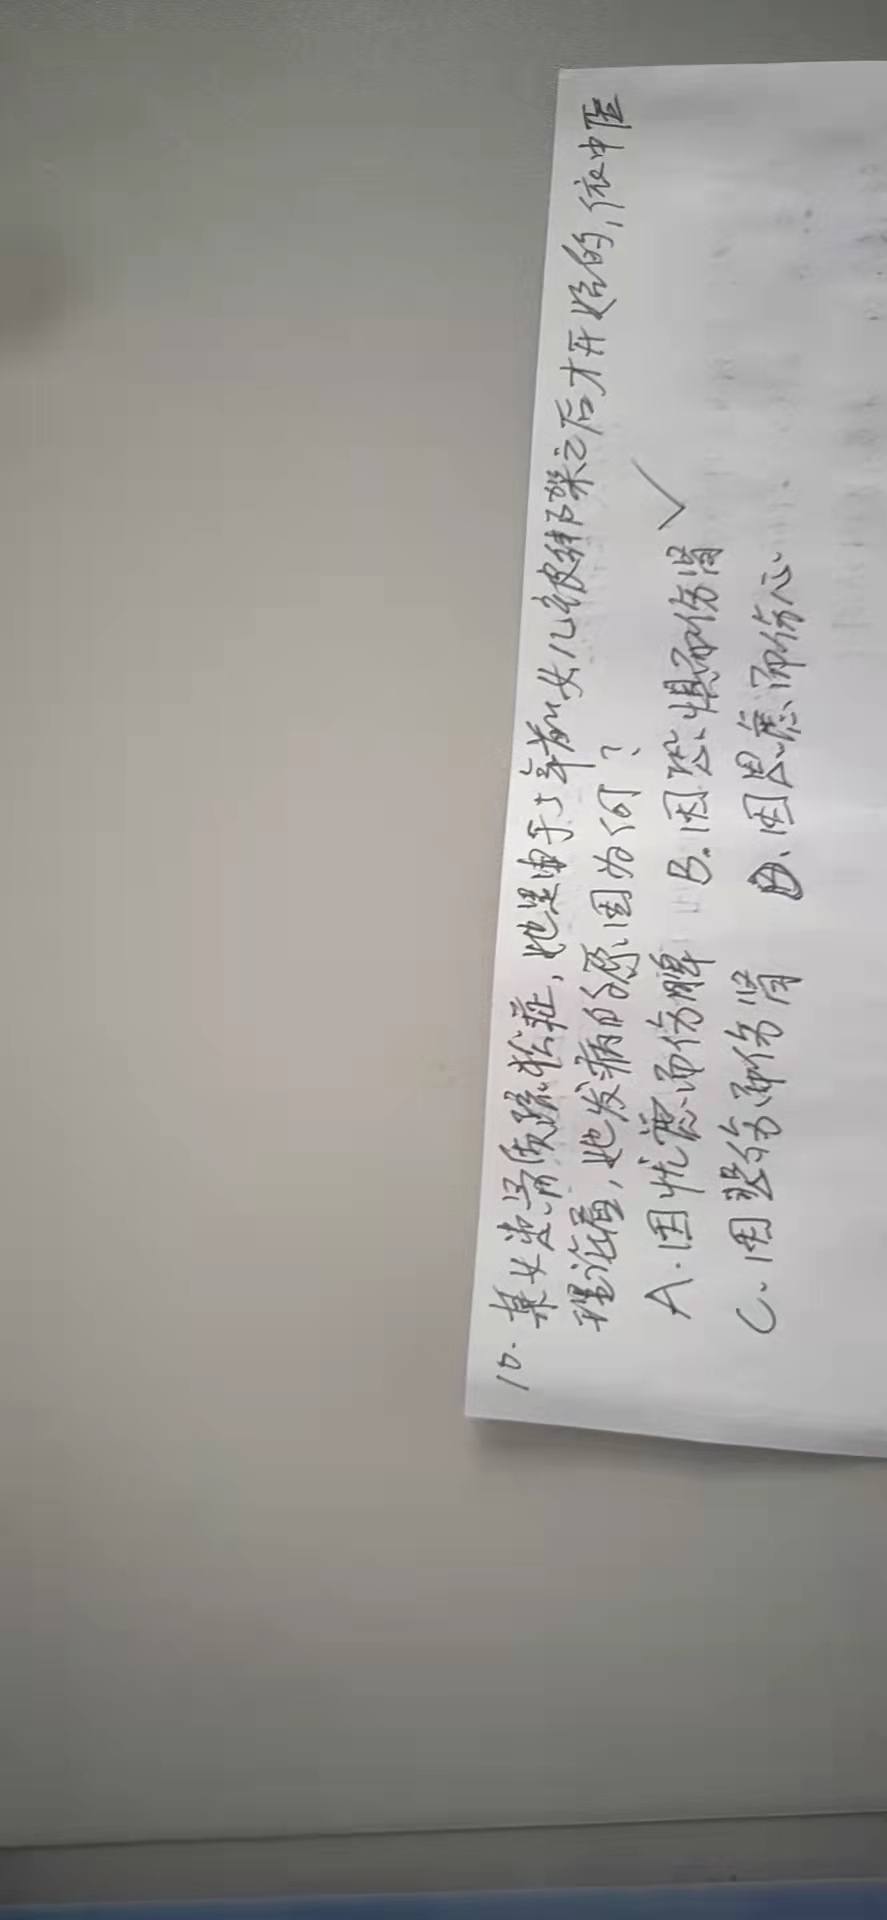 10. 某女患骨质疏松症,她是由于5年前女儿被绑架之后才开始的,依中医
理论看,她发病的原因为何?
A.因忧虑而伤脾 B.因恐惧而伤肾 ✓
C.因悲伤而伤肾 D.因思虑而伤心